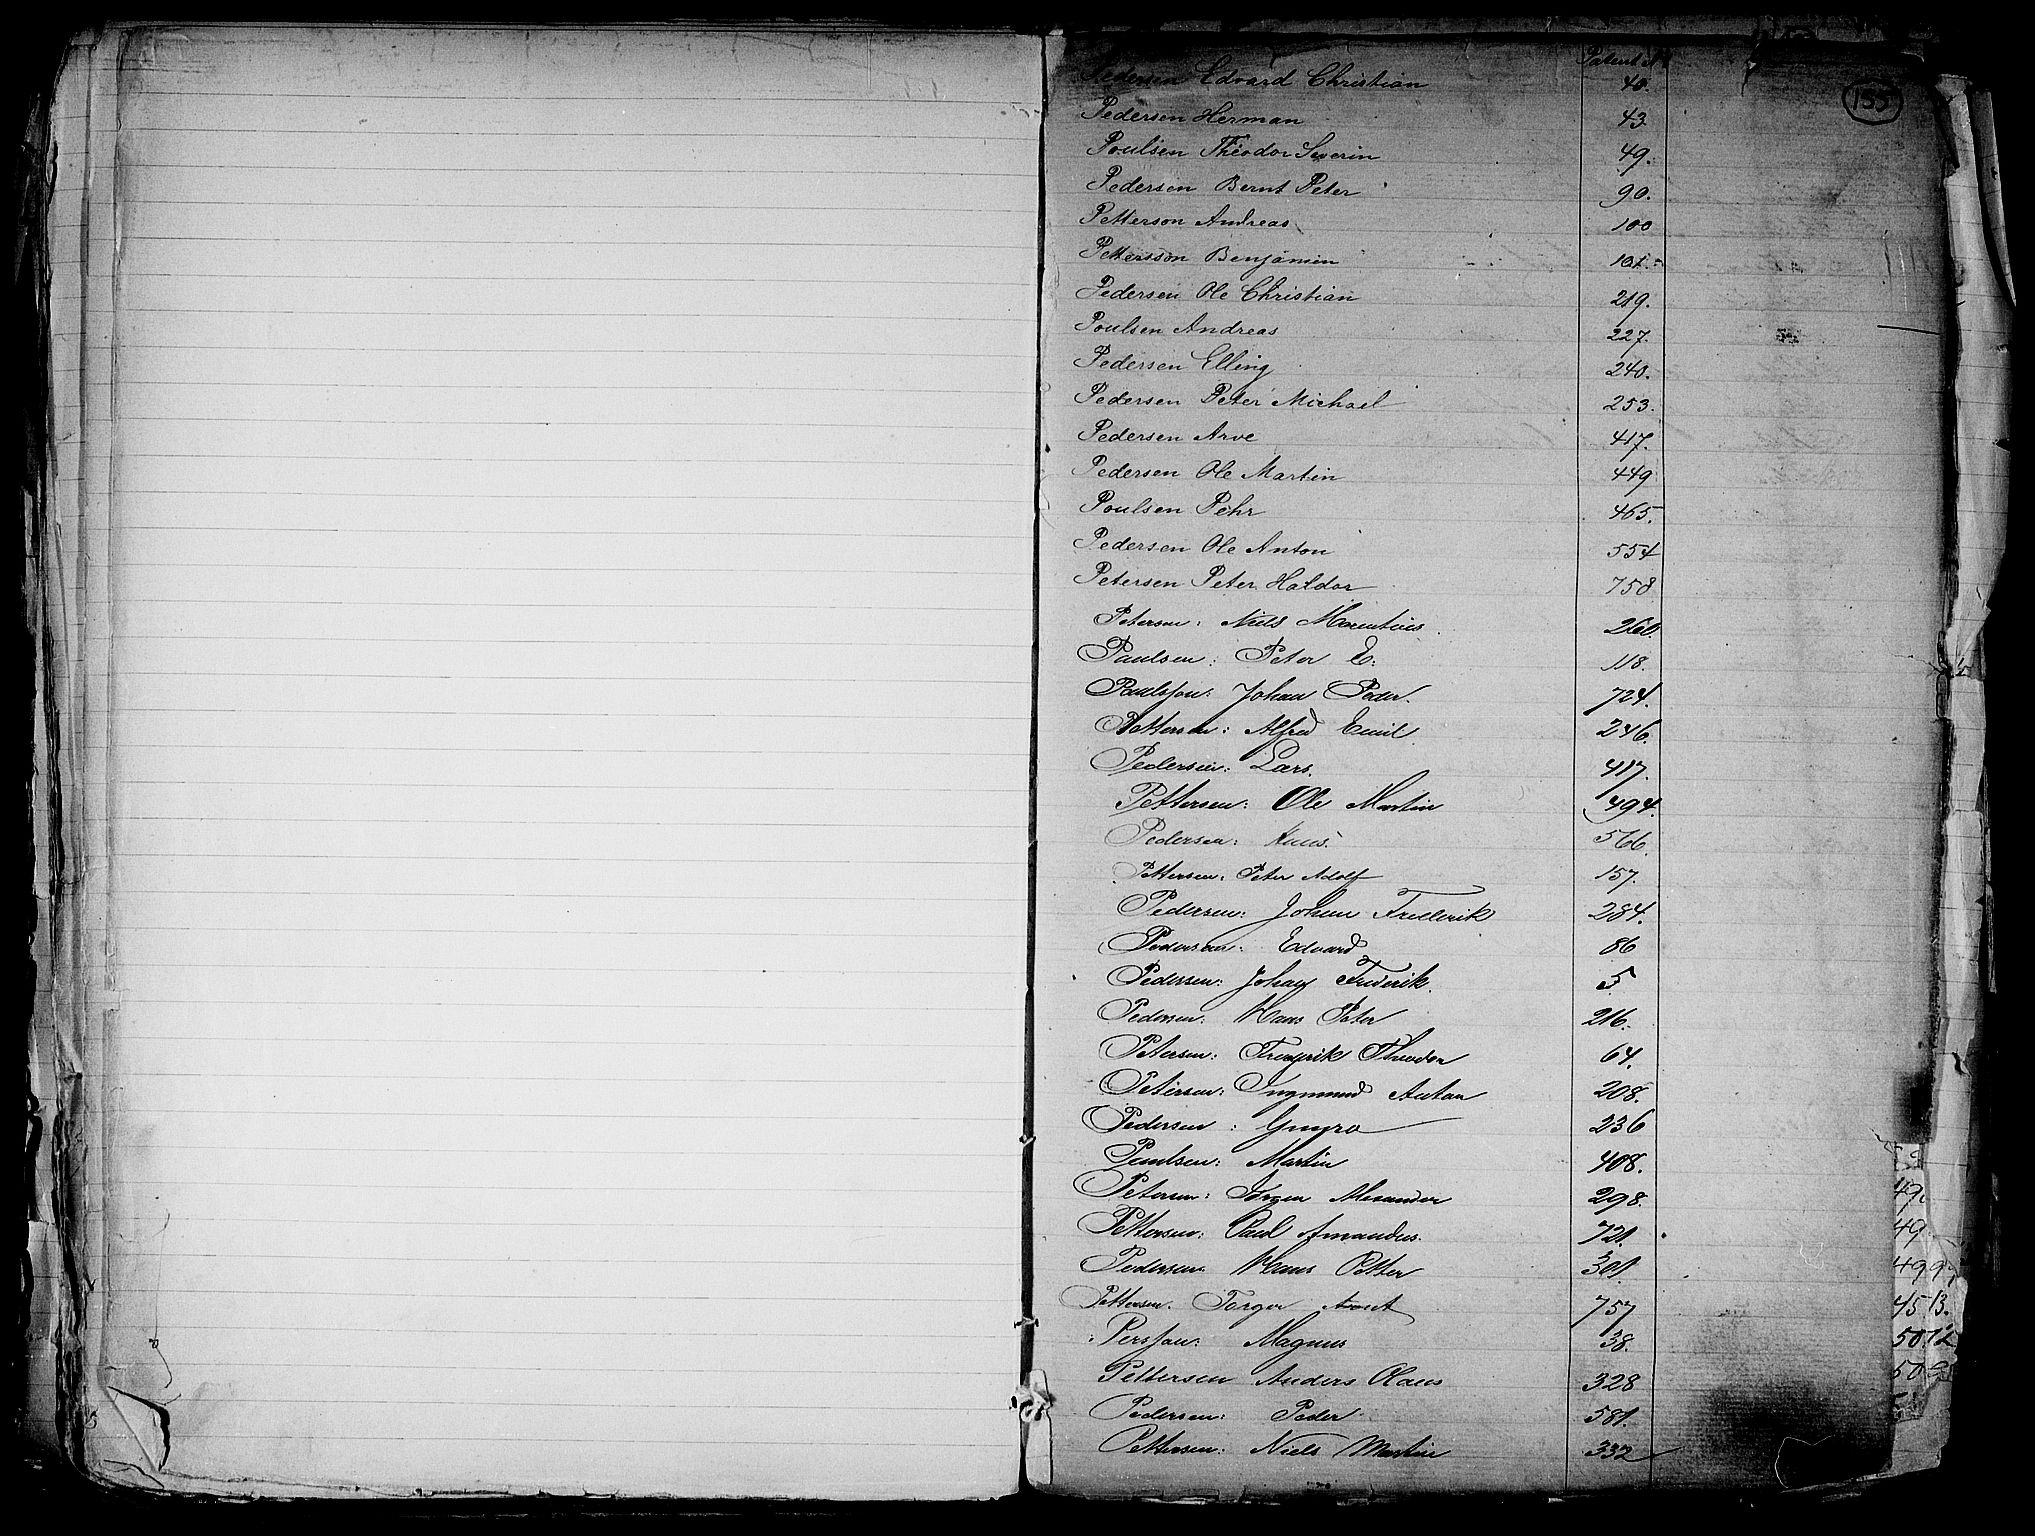 Patent N
155
Pedersen Edvard Christian 40.
Pedersen Herman 43
Poulsen Theodor Severin 49.
Pedersen Bernt Peter 90.
Petterson Andreas 100
Pettersson Benjamin 101.
Pedersen Ole Christian 219.
Poulsen Andreas 227.
Pedersen Elling 240.
Pedersen Peter Michael 253.
Pedersen Arve 417.
Pedersen Ole Martin 449
Poulsen Pehr 465.
Pedersen Ole Anton 554
Petersen Peter Haldor 758
Petersen: Niels Marentius 260.
Paulsen: Peter E. 118.
Paulsson: Johan Peder. 724.
Pettersen: Alfred Emil. 246.
Pedersen: Lars. 417.
Pettersen: Ole Martin 494.
Pedersen: Hans. 566.
Pettersen: Peter Adolf 157.
Pedersen: Johan Frederik 284.
Pedersen: Edvard 86
Pedersen: Johan Frederik. 5
Pedersen: Hans Peter 216.
Petersen: Fredrik Theodor 64.
Petersen: Ingmund Anton 208.
Pedersen: 236
Paulsen: Martin 408.
Petersen: Jørgen Alexander 298.
Pettersen: Paul Amandus. 721.
Pedersen Hans Petter 301
Pettersen. Torger 757
Persson: Magnus 38.
Pettersen Anders Olaus 328
Pedersen: Peder 581.
Pettersen: Niels Martin 332
49.
49
499
4513.
5072
50